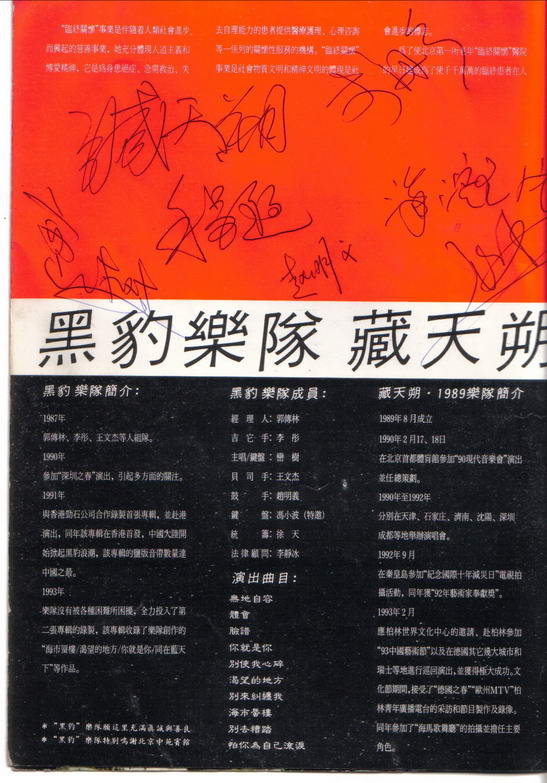 “臨終關懷”事業是伴隨着人類社會進步、
而興起的慈善事業，她充分體現人道主義和
博愛精神，它是為身患絕症、急需救治、失
去自理能力的患者提供醫療護理、心理咨詢
等一係列的關懷性服務的機構。“臨終關懷”
事業是社會物質文明和精神文明的體現是社
會進步的標志。
爲了使北京第一所
“臨終關懷”醫院
千千萬萬的臨終患者在人
臧天朔
趙明义
黑豹樂隊 藏天朔
黑豹樂隊簡介：
1987年
郭傳林、李彤、王文杰等人組隊。
1990年
參加“深圳之春”演出，引起多方面的關注。
1991年
與香港勁石公司合作錄製首張專輯，並赴港
演出，同年該專輯在香港首發，中國大陸開
始掀起黑豹浪潮，該專輯的盤版音帶數量達
中國之最。
1993年
樂隊沒有被各種困難所困擾，全力投入了第
二張專輯的錄製，該專輯收錄了樂隊創作的
“海市蜃樓/渴望的地方/你就是你/同在藍天
下”等作品。
＊“黑豹”樂隊願這里充滿眞誠與善良
＊“黑豹”樂隊特別鳴謝北京中苑賓館
黑豹樂隊成員：
經理人：郭傳林
吉它手：李彤
主唱/鍵盤：巒樹
貝司手：王文杰
鼓手：趙明義
鍵盤：馮小波（特邀）
統籌：徐天
法律顧問：李靜冰
演出曲目：
無地自容
體會
臉譜
你就是你
別使我心碎
渴望的地方
別來糾纏我
海市蜃樓
別去糟踏
怕你為自己流淚
藏天朔・1989樂隊簡介
1989年8月成立
1990年2月17、18日
在北京首都體育館參加“90現代音樂會”演出
並任總策劃。
1990年至1992年
分別在天津、石家庄、濟南、沈陽、深圳
成都等地舉辦演唱會。
1992年9月
在秦皇島參加“紀念國際十年減災日”電視拍
攝活動，同年獲“92年藝術家奉獻獎”。
1993年2月
應柏林世界文化中心的邀請、赴柏林參加
“93中國藝術節”以及在德國其它幾大城市和
瑞士等地進行巡回演出，並獲得極大成功。文
化節期間，接受了“德國之春”“歐州MTV”柏
林青年廣播電台的采訪和節目製作及錄像。
同年參加了“海馬歌舞廳”的拍攝並擔任主要
角色。